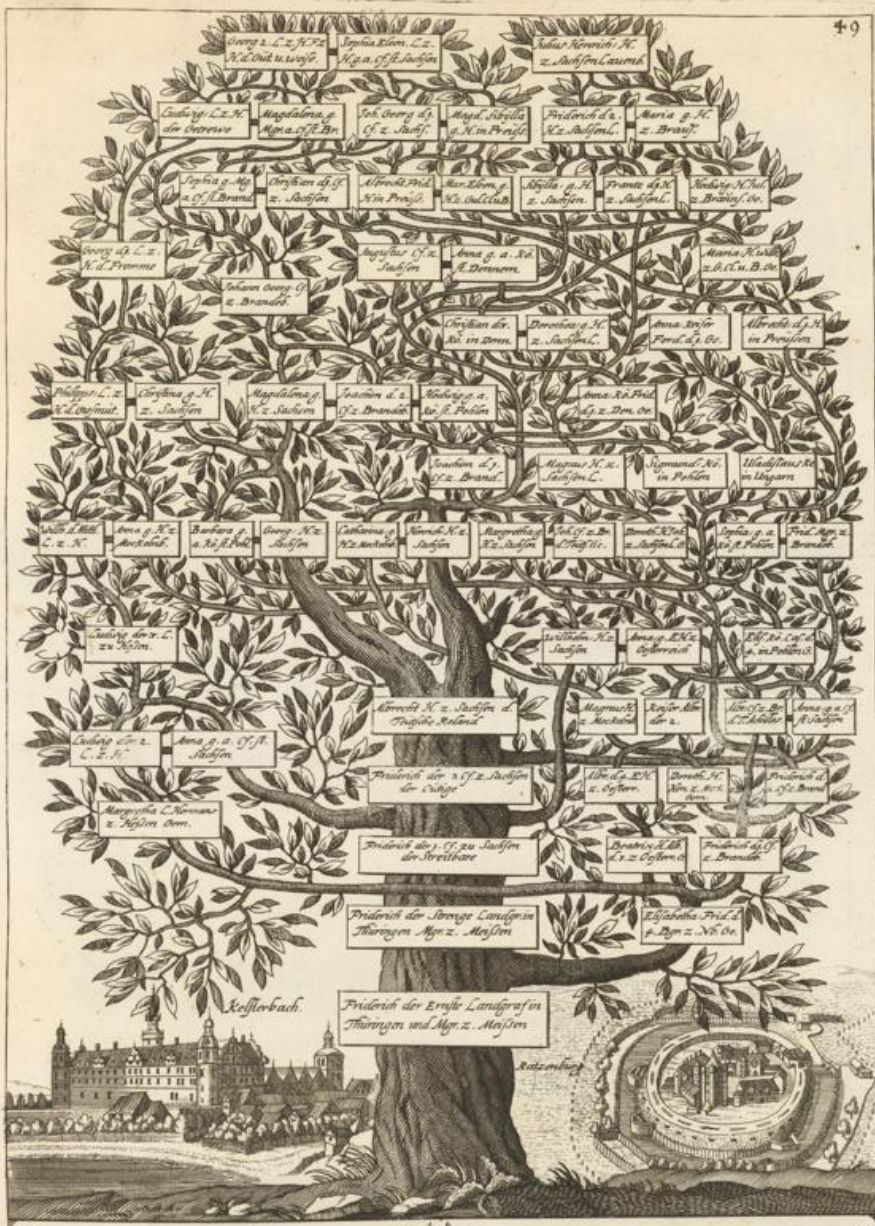 49
Georg 2. L. z. H. F. z
H. d. Gut u. weise.
Sophia Eleon. L. z.
H. g. a. Cf. st. Sachsen
Julius Henrich: H.
z. Sachsen Lauenb.
Ludwig: L. z. H.
der Getrewe
Magdalena. g.
Mgr. a. Cf. st. Br.
Joh. Georg d. j.
Cf. z. Sachs.
Magd. Sibylla
g. H. in Preuss.
Friderich d 2.
H. z. Sachsen L.
Maria g. H.
z. Braus.
Sophia g. Mg.
a. Cf. st. Brand
Christian d. j. Cf.
z. Sachsen
Albrecht Frid.
H in Preuss.
Mar. Eleon. g.
H. z. Gul. Cl. u B.
Sibylla. g. H.
z. Sachsen.
Frantz d. j. H.
z. Sachsen L.
Hedwig. H. Jul.
z. Braunf. Ge.
Georg d. j. L. z.
H. d. Fromme
Johann Georg. Cf.
z. Brandeb.
Augustus Cf. z.
Sachsen
Anna g. a. Kö.
st. Dennem.
Maria H. Wilh.
z. G. Cl. u. B. Ge.
Christian der.
Kö. in Denn.
Dorothea g. H.
z. Sachsen L.
Anna Keiser
Ferd. d. j. Ge.
Albrecht d. j. H.
in Preussen
Philipps: L. z.
H. d. Grosmut.
Christina g. H.
z. Sachsen
Magdalena g.
H. z. Sachsen
Joachim d 2.
Cf. z. Brandeb.
Hedwig g. a.
Kö. st. Pohlen
Anna. Kö. Frid.
d. j. z. Den. Ge.
Joachim d. j.
Cf. z. Brand.
Magnus H. z.
Sachsen L.
Sigmund. Kö.
in Pohlen
Uladislaus Kö
in Ungarn
Wilh. d. Mitl.
L. z. H.
Anna g. H. z.
Meckelnb.
Barbara g.
a. Kö. st. Pohl.
Georg. H. z.
Sachsen
Catharina. g.
H. z. Meckelnb
Henrich H. z.
Sachsen
Margretha g.
H. z. Sachsen
Joh. Cf. z. Br.
Doroth. H. Joh.
z. Sachsen L. G.
Sophia. g. a
Kö. st. Pohlen
Frid. Mgr. z.
Brandeb.
Ludwig der 1. L.
zu Hessen.
Wilhelm. H. z.
Sachsen
Anna. g. E. H. z.
Oesterreich
Elis. Kö. Cas. d.
4. in Pohlen G.
Albrecht H. z. Sachsen d.
Teutsche Roland
Magnus H.
z. Meckelnb
Keiser Albr.
der 2.
Albr. Cf. z. Br.
d. T. Achilles.
Anna. g. a. Cf.
st. Sachsen
Ludwig der 2.
L. z. H.
Anna g. a. Cf. st.
Sachsen
Friderich der 2 Cf. z. Sachsen
der Gütige
Albr. d. 4. E. H.
z. Oesterr.
Doroth. H.
Hen. z. Meck
Gem.
Friderich d.
2. Cf. z. Brand
Margretha L. Hermans
z. Hessen Gem.
Friderich der 1. Cf. zu Sachsen
der Streitbare
Beatrix H. Alb.
d. 3. z. Oesterr. G.
Friderich d. j. Cf.
z. Brandeb.
Friderich der Strenge Landgr. in
Thüringen Mgr. z. Meissen
Elisabetha. Frid. d.
4. Bgr. z. Nb. Ge.
Kelsterbach.
Friderich der Ernste Landgraf in
Thüringen und Mgr. z. Meissen
Ratzenburg